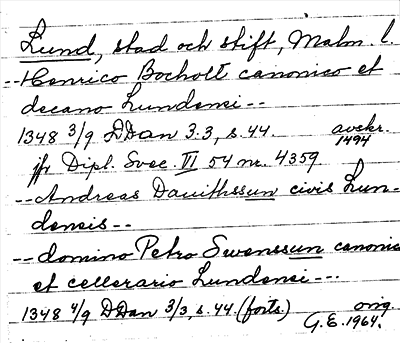 Lund, stad och stift, Malm. l.
--Henrico Bocholt canonico et
decano Lundensi--
1348 3/9 DDan 3:3, s. 44. avskr.
1494
jfr Dipl. Svec. VI 54 nr. 4359
--Andreas Dauithssun civis Lun-
densis--
--domino Petro Swenssun canonic
et cellerario Lundensi---
1348 4/9 DDan 3/3, s. 44. (forts.) orig.
G.E. 1964.